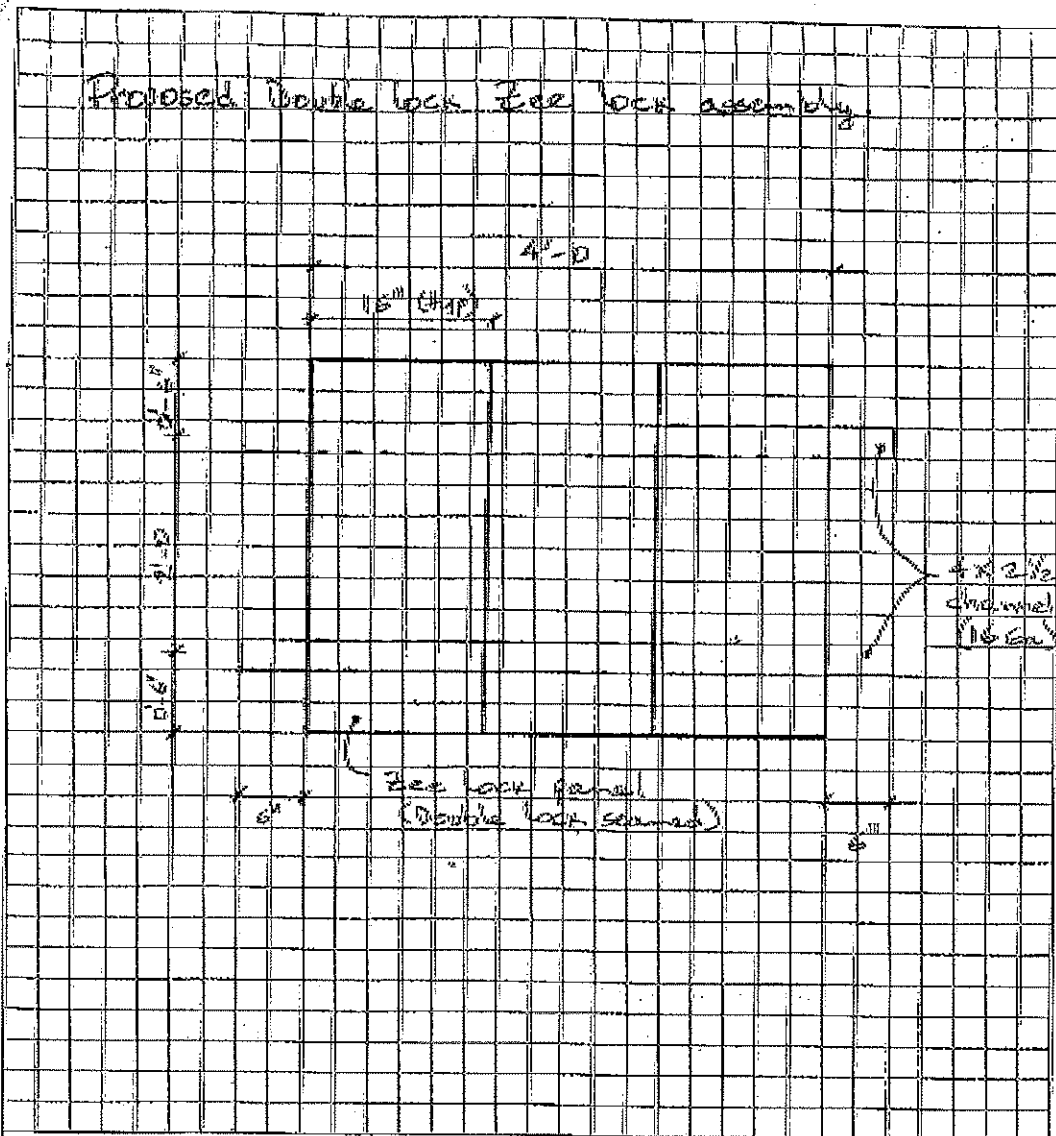 Proposed Double lock Zee lock assembly
4'-0
16" (typ)
2'-0
0'-6"
4 x 2 1/2
channel
(16 Ga)
Zee Lock panel
(Double lock seamed)
6"
6"